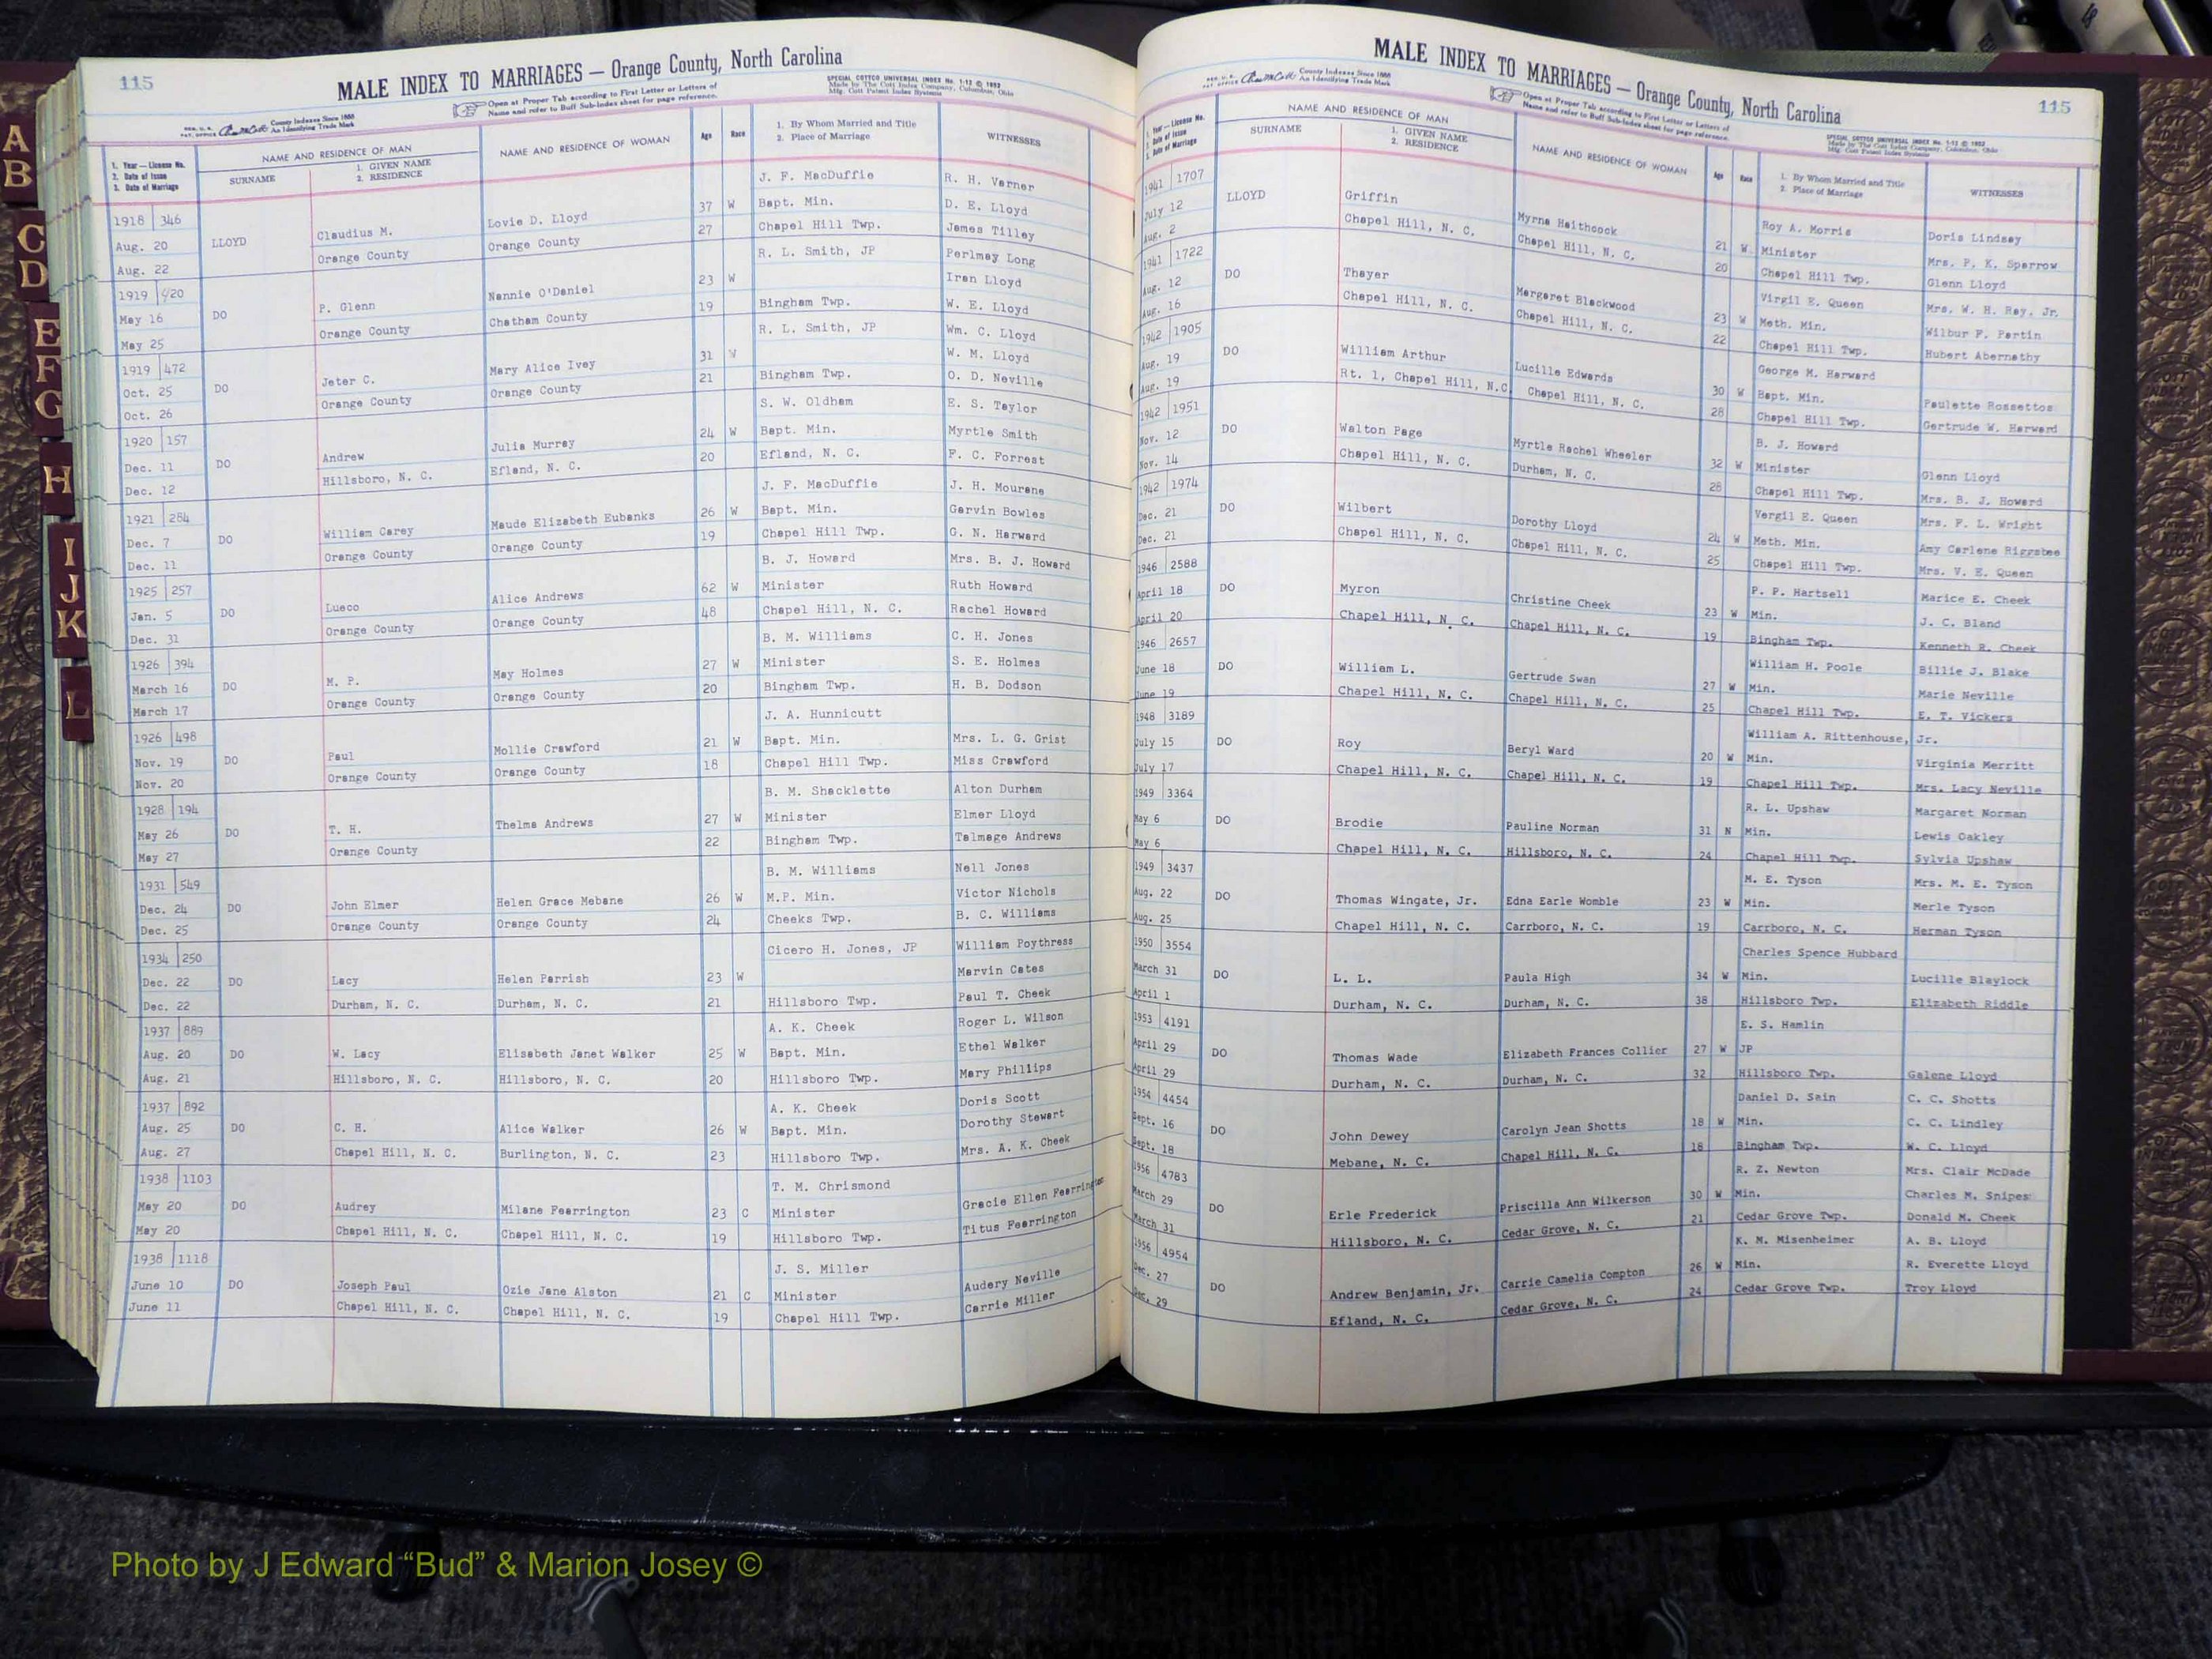 A
B
C
D
E
F
G
H
I
J
K
L
115
MALE INDEX TO MARRIAGES — Orange County, North Carolina
County Indexes Since 1888
An Identifying Trade Mark
Open at Proper Tab according to First Letter or Letters of
Name and refer to Buff Sub-Index sheet for page reference.
SPECIAL COTTCO UNIVERSAL INDEX No. 1-12 © 1952
Made by The Cott Index Company, Columbus, Ohio
Mfg. Cott Patent Index Systems
1. Year — License No.
2. Date of Issue
3. Date of Marriage
NAME AND RESIDENCE OF MAN
SURNAME
1. GIVEN NAME
2. RESIDENCE
NAME AND RESIDENCE OF WOMAN
Age
Race
1. By Whom Married and Title
2. Place of Marriage
WITNESSES
J. F. MacDuffie R. H. Verner
1918 346 Lovie D. Lloyd 37 W Bapt. Min. D. E. Lloyd
Aug. 20 LLOYD Claudius M. Orange County 27 Chapel Hill Twp. James Tilley
Aug. 22 Orange County
R. L. Smith, JP Perlmay Long
1919 420 Nannie O'Daniel 23 W Iran Lloyd
May 16 DO P. Glenn Chatham County 19 Bingham Twp. W. E. Lloyd
May 25 Orange County
R. L. Smith, JP Wm. C. Lloyd
1919 472 Mary Alice Ivey 31 W W. M. Lloyd
Oct. 25 DO Jeter C. Orange County 21 Bingham Twp. O. D. Neville
Oct. 26 Orange County
S. W. Oldham E. S. Taylor
1920 157 Julia Murray 24 W Bapt. Min. Myrtle Smith
Dec. 11 DO Andrew Efland, N. C. 20 Efland, N. C. F. C. Forrest
Dec. 12 Hillsboro, N. C.
J. F. MacDuffie J. H. Mourane
1921 284 Maude Elizabeth Eubanks 26 W Bapt. Min. Garvin Bowles
Dec. 7 DO William Carey Orange County 19 Chapel Hill Twp. G. N. Harward
Dec. 11 Orange County
B. J. Howard Mrs. B. J. Howard
1925 257 Alice Andrews 62 W Minister Ruth Howard
Jan. 5 DO Lueco Orange County 48 Chapel Hill, N. C. Rachel Howard
Dec. 31 Orange County
B. M. Williams C. H. Jones
1926 394 May Holmes 27 W Minister S. E. Holmes
March 16 DO M. P. Orange County 20 Bingham Twp. H. B. Dodson
March 17 Orange County
J. A. Hunnicutt
1926 498 Mollie Crawford 21 W Bapt. Min. Mrs. L. G. Grist
Nov. 19 DO Paul Orange County 18 Chapel Hill Twp. Miss Crawford
Nov. 20 Orange County
B. M. Shacklette Alton Durham
1928 194 Thelma Andrews 27 W Minister Elmer Lloyd
May 26 DO T. H. 22 Bingham Twp. Talmage Andrews
May 27 Orange County
B. M. Williams Nell Jones
1931 549 Helen Grace Mebane 26 W M.P. Min. Victor Nichols
Dec. 24 DO John Elmer Orange County 24 Cheeks Twp. B. C. Williams
Dec. 25 Orange County
Cicero H. Jones, JP William Poythress
1934 250 Marvin Cates
Dec. 22 DO Lacy Helen Parrish 23 W
Dec. 22 Durham, N. C. Durham, N. C. 21 Hillsboro Twp. Paul T. Cheek
1937 889 A. K. Cheek Roger L. Wilson
Aug. 20 DO W. Lacy Elizabeth Janet Walker 25 W Bapt. Min. Ethel Walker
Aug. 21 Hillsboro, N. C. Hillsboro, N. C. 20 Hillsboro Twp. Mary Phillips
1937 892 A. K. Cheek Doris Scott
Aug. 25 DO C. H. Alice Walker 26 W Bapt. Min. Dorothy Stewart
Aug. 27 Chapel Hill, N. C. Burlington, N. C. 23 Hillsboro Twp. Mrs. A. K. Cheek
1938 1103 T. M. Chrismond
May 20 DO Audrey Milane Fearrington 23 C Minister Gracie Ellen Fearrington
May 20 Chapel Hill, N. C. Chapel Hill, N. C. 19 Hillsboro Twp. Titus Fearrington
1938 1118 J. S. Miller
June 10 DO Joseph Paul Ozie Jane Alston 21 C Minister Audery Neville
June 11 Chapel Hill, N. C. Chapel Hill, N. C. 19 Chapel Hill Twp. Carrie Miller
MALE INDEX TO MARRIAGES — Orange County, North Carolina
115
County Indexes Since 1888
An Identifying Trade Mark
Open at Proper Tab according to First Letter or Letters of
Name and refer to Buff Sub-Index sheet for page reference.
SPECIAL COTTCO UNIVERSAL INDEX No. 1-12 © 1952
Made by The Cott Index Company, Columbus, Ohio
Mfg. Cott Patent Index Systems
1. Year — License No.
2. Date of Issue
3. Date of Marriage
NAME AND RESIDENCE OF MAN
SURNAME
1. GIVEN NAME
2. RESIDENCE
NAME AND RESIDENCE OF WOMAN
Age
Race
1. By Whom Married and Title
2. Place of Marriage
WITNESSES
1941 1707 Roy A. Morris Doris Lindsay
July 12 LLOYD Griffin Myrna Haithcock 21 W Minister Mrs. P. K. Sparrow
Aug. 2 Chapel Hill, N. C. Chapel Hill, N. C. 20 Chapel Hill Twp. Glenn Lloyd
1941 1722 Virgil E. Queen Mrs. W. H. Ray, Jr.
Aug. 12 DO Thayer Margaret Blackwood 23 W Meth. Min. Wilbur F. Partin
Aug. 16 Chapel Hill, N. C. Chapel Hill, N. C. 22 Chapel Hill Twp. Hubert Abernathy
1942 1905 George M. Harward
Aug. 19 DO William Arthur Lucille Edwards 30 W Bapt. Min. Paulette Rossettos
Aug. 19 Rt. 1, Chapel Hill, N.C. Chapel Hill, N. C. 28 Chapel Hill Twp. Gertrude W. Harward
1942 1951 B. J. Howard
Nov. 12 DO Walton Page Myrtle Rachel Wheeler 32 W Minister Glenn Lloyd
Nov. 14 Chapel Hill, N. C. Durham, N. C. 28 Chapel Hill Twp. Mrs. B. J. Howard
1942 1974 Vergil E. Queen Mrs. F. L. Wright
Dec. 21 DO Wilbert Dorothy Lloyd 24 W Meth. Min. Amy Carlene Riggsbee
Dec. 21 Chapel Hill, N. C. Chapel Hill, N. C. 25 Chapel Hill Twp. Mrs. V. E. Queen
1946 2588 P. P. Hartsell Marice E. Cheek
April 18 DO Myron Christine Cheek 23 W Min. J. C. Bland
April 20 Chapel Hill, N. C. Chapel Hill, N. C. 19 Bingham Twp. Kenneth R. Cheek
1946 2657 William H. Poole Billie J. Blake
June 18 DO William L. Gertrude Swan 27 W Min. Marie Neville
June 19 Chapel Hill, N. C. Chapel Hill, N. C. 25 Chapel Hill Twp. E. T. Vickers
1948 3189 William A. Rittenhouse, Jr.
July 15 DO Roy Beryl Ward 20 W Min. Virginia Merritt
July 17 Chapel Hill, N. C. Chapel Hill, N. C. 19 Chapel Hill Twp. Mrs. Lacy Neville
1949 3364 R. L. Upshaw Margaret Norman
May 6 DO Brodie Pauline Norman 31 N Min. Lewis Oakley
May 6 Chapel Hill, N. C. Hillsboro, N. C. 24 Chapel Hill Twp. Sylvia Upshaw
1949 3437 M. E. Tyson Mrs. M. E. Tyson
Aug. 22 DO Thomas Wingate, Jr. Edna Earle Womble 23 W Min. Merle Tyson
Aug. 25 Chapel Hill, N. C. Carrboro, N. C. 19 Carrboro, N. C. Herman Tyson
1950 3554 Charles Spence Hubbard
March 31 DO L. L. Paula High 34 W Min. Lucille Blaylock
April 1 Durham, N. C. Durham, N. C. 38 Hillsboro Twp. Elizabeth Riddle
1953 4191 E. S. Hamlin
April 29 DO Thomas Wade Elizabeth Frances Collier 27 W JP
April 29 Durham, N. C. Durham, N. C. 32 Hillsboro Twp. Galene Lloyd
1954 4454 Daniel D. Sain C. C. Shotts
Sept. 16 DO John Dewey Carolyn Jean Shotts 18 W Min. C. C. Lindley
Sept. 18 Mebane, N. C. Chapel Hill, N. C. 18 Bingham Twp. W. C. Lloyd
1956 4783 R. Z. Newton Mrs. Clair McDade
March 29 DO Erle Frederick Priscilla Ann Wilkerson 30 W Min. Charles M. Snipes
March 31 Hillsboro, N. C. Cedar Grove, N. C. 21 Cedar Grove Twp. Donald M. Cheek
1956 4954 K. M. Misenheimer A. B. Lloyd
Dec. 27 DO Andrew Benjamin, Jr. Carrie Camelia Compton 26 W Min. R. Everette Lloyd
Dec. 29 Efland, N. C. Cedar Grove, N. C. 24 Cedar Grove Twp. Troy Lloyd
Photo by J Edward “Bud” & Marion Josey ©